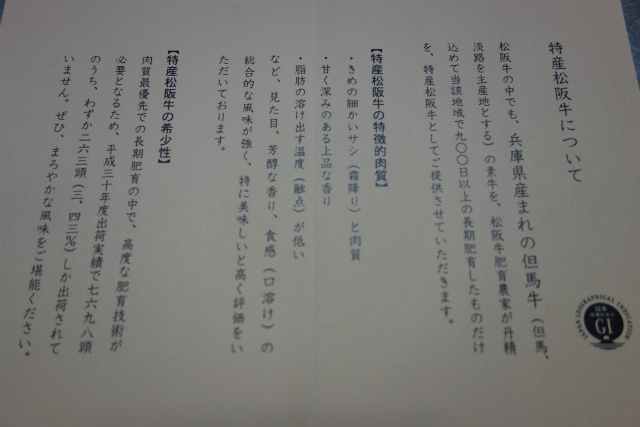 特産松阪牛について
松阪牛の中でも、兵庫県産まれの但馬牛（但馬、
淡路を主産地とする）の素牛を、松阪牛肥育農家が丹精
込めて当該地域で九〇〇日以上の長期肥育したものだけ
を、特産松阪牛としてご提供させていただきます。
【特産松阪牛の特徴的肉質】
・きめの細かいサシ（霜降り）と肉質
・甘く深みのある上品な香り
・脂肪の溶け出す温度（融点）が低い
など、見た目、芳醇な香り、食感（口溶け）の
総合的な風味が強く、特に美味しいと高く評価をい
ただいております。
【特産松阪牛の希少性】
肉質最優先での長期肥育の中で、高度な肥育技術が
必要となるため、平成三十年度出荷実績で七六九八頭
のうち、わずか二六三頭（三、四三％）しか出荷されて
いません。ぜひ、まろやかな風味をご堪能ください。
JAPAN GEOGRAPHICAL INDICATION
日本
GI